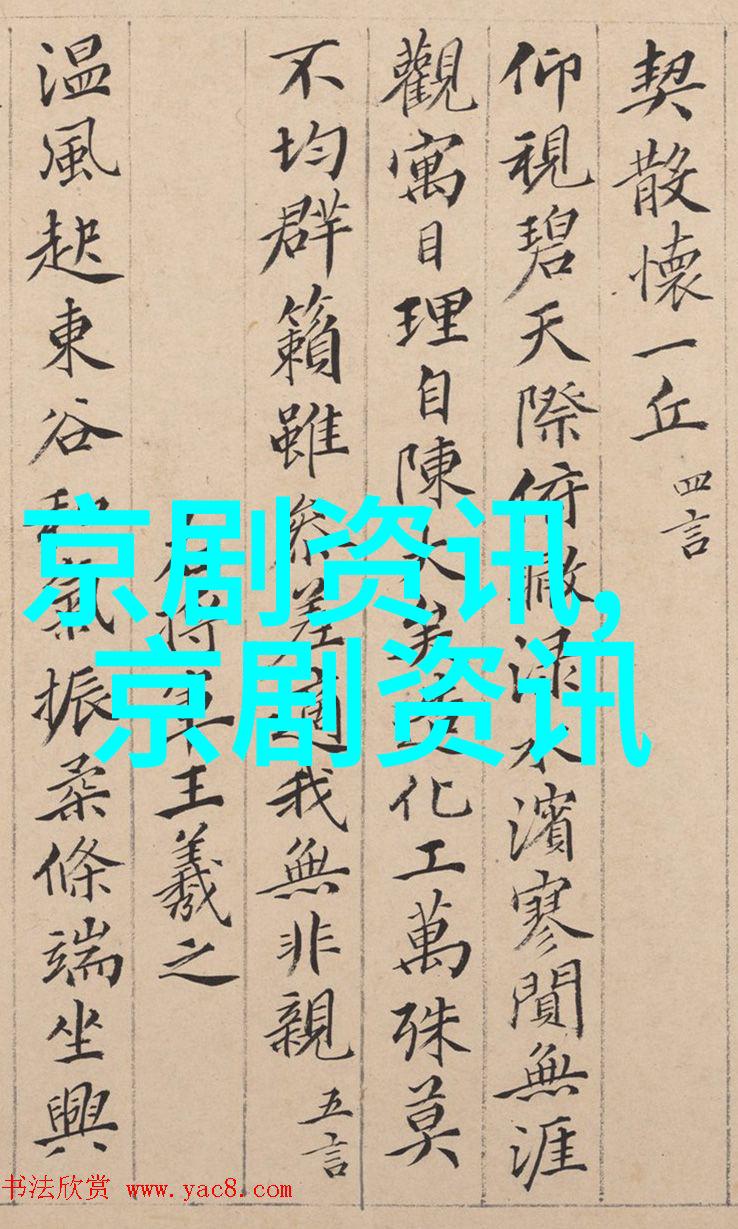 契散懷一丘 四言
仰視碧天際俯瞰渌水濱寥閴無涯
觀寓目理自陳大矣造化工萬殊莫
不均群籟雖參差適我無非親 五言
右將軍王羲之
温風起東谷和氣振柔條端坐興
京剧资讯,
京剧资讯
书法欣赏 www.yac8.com